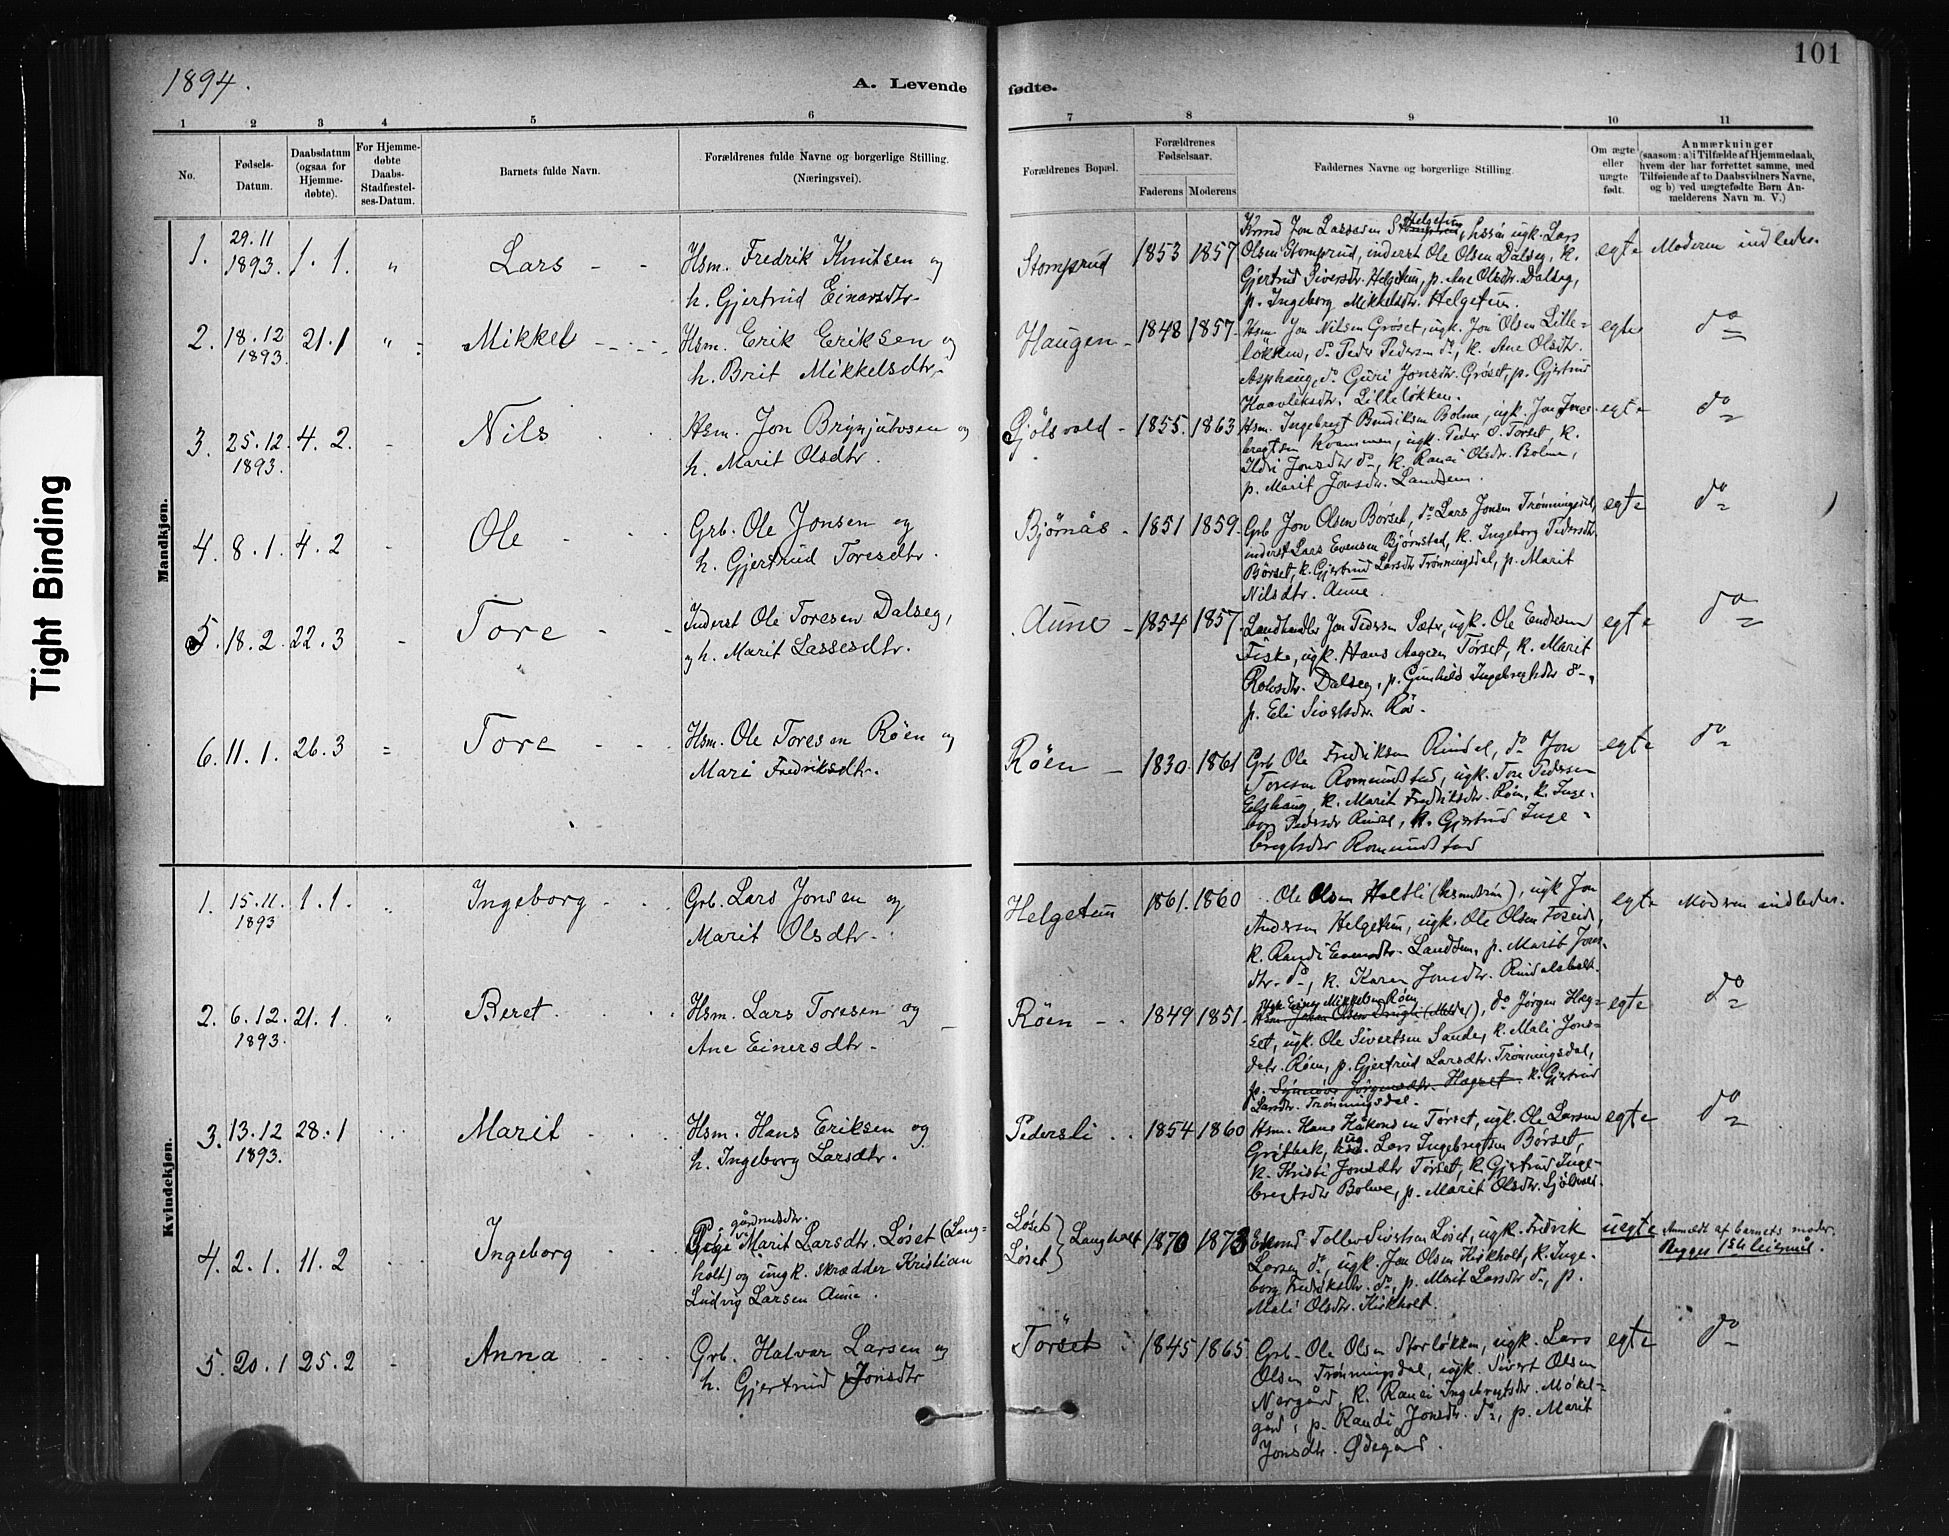 101
1894.
A. Levende
fødte.
1 2 3 4 5 6 7 8 9 10 11
No.
Fødsels-
Datum.
Daabsdatum
(ogsaa for
Hjemme-
døbte).
For Hjemme-
døbte
Daabs-
Stadfæstel-
ses-Datum.
Barnets fulde Navn.
Forældrenes fulde Navne og borgerlige Stilling.
(Næringsvei).
Forældrenes Bopæl.
Forældrenes
Fødselsaar.
Faderens
Moderens
Faddernes Navne og borgerlige Stilling.
Om ægte
eller
uægte
født.
Anmærkninger
(saasom: a) i Tilfælde af Hjemmedaab,
hvem der har forrettet samme, med
Tilføiende af to Daabsvidners Navne,
og b) ved uægtefødte Børn An-
melderens Navn m. V.)
Tight Binding
Mandkjøn.
1. 29.11 1893. 1.1. " Lars
Hsm. Fredrik Knutsen og
h. Gjertrud Einarsdtr.
Stomprud 1853 1857
Olsen Stomprud, inderst Ole Olsen Dalseg, k.
Gjertrud Siversdtr. Helgetun, p. Ane Olsdtr. Dalseg,
p. Ingeborg Mikkelsdtr. Helgetun.
egte Moderen indledes.
2. 18.12 1893. 21.1 " Mikkel
Hsm. Erik Eriksen og
h. Brit Mikkelsdtr.
Haugen 1848 1857
Hsm. Jon Nilsen Grøset, ugk. Jon Olsen Lille-
løkken, do Peder Pedersen do, k. Ane Olsdtr.
Asphaug, do Guri Jonsdtr. Grøset, p. Gjertrud
Lilleløkken.
egte do
3. 25.12. 1893. 4.2. Nils
Hsm. Jon Brynjulvsen og
h. Marit Olsdtr.
Gjølsvold 1855. 1863
Hsm. Ingebregt Bendiksen Bolme, ugk. Jon Inge-
bregtsen Kvammen, ugk. Peder O. Tørset, k.
Ildri Jonsdtr do, k. Ranei Olsdtr. Bolme,
p. Marit Jonsdtr. Landsem.
egte do
4. 8.1. 4.2 Ole
Grb. Ole Jonsen og
h. Gjertrud Toresdtr.
Bjørnås 1851 1859.
Grb Jon Olsen Børset, do Lars Jonsen Trønningsdal,
inderst Lars Evensen Bjørnstad, k. Ingeborg Pedersdtr
Børset, k. Gjertrud Larsdtr Trønningsdal, p. Marit
Nilsdtr. Aune.
egte do
5. 18.2. 22.3 Tore
Inderst Ole Toresen Dalseg,
og h. Marit Lassesdtr.
Aune 1854 1857
Landhandler Jon Pedersen Sæter, ugk. Ole Endresen
Fiske, ugk. Hans Aagesen Tørset, k. Marit
Dalseg, p. Gunhild Ingebregtsdtr
p. Eli Sivertsdtr. Rø.
egte do
6. 11.1. 26.3 Tore
Hsm. Ole Toresen Røen og
Mari Fredriksdtr.
Røen 1830 1861
Grb Ole Fredriksen Rindal, do Jon
Toresen Romundstad, ugk. Tore Pedersen
Elshaug, k. Marit Fredriksdtr. Røen, k. Inge-
borg Pedersdtr Rindal, k. Gjertrud Inge-
bregtsdtr Romundstad
egte do
Kvindekjøn.
1. 15.11. 1893 1.1. Ingeborg
Grb. Lars Jonsen og
Marit Olsdtr.
Helgetun 1861. 1860
Ole Olsen Holtli, ugk Jon
Andersen Helgetun, ugk. Ole Olsen Foseide,
k. Randi Evensdtr. Landsem, p. Marit Jons-
dtr. do, k. Karen Jonsdtr. Rindalsholt.
egte Moderen indledes.
2. 6.12. 1893. 21.1. " Beret
Hsm. Lars Toresen og
Ane Einersdtr.
Røen 1849 1851.
Einer Mikkelsen Røen
Hsm. Johan Olsen Drugli (Meldal), do Jørgen Hæg-
set, ugk. Ole Sivertsen Sande, k. Mali Jons-
datr. Røen, p. Gjertrud Larsdtr. Trønningsdal,
p. Synnøve Jørgensdtr. Hægset k. Gjertrud
Larsdtr. Trønningsdal.
egte do
3. 13.12 1893. 28.1 Marit
Hsm. Hans Eriksen og
h. Ingeborg Larsdtr.
Pedersli 1854 1860
Hsm. Hans Håkonsen Tørset, ugk. Ole Larsen
Grøtbæk, ug. Lars Ingebregtsen Børset,
k. Kristi Jonsdtr Tørset, k. Gjertrud Inge-
bregtsdtr Bolme, p. Marit Olsdtr.
egte do
4. 2.1. 11.2 Ingeborg
gårdmdtr.
Pige Marit Larsdtr. Løset (Lang-
holt) og ungk. skrædder Kristian
Ludvig Larsen Aune.
Løset
Løset } Langholt 1870 1873
Tollev Sivertsen Løset, ugk. Fredrik
Larsen do, ugk. Jon Olsen Kirkholt, k. Inge-
borg Fredriksdtr. do, p. Marit Larsdtr do, p.
Mali Olsdtr. Kirkholt.
uegte Anmeldt af barnets moder.
Begges 1ste leiermål.
5. 20.1 25.2 Anna
Grb. Halvar Larsen og
h. Gjertrud Jonsdtr
Tørset 1845 1865
Grb. Ole Olsen Storløkken, ugk. Lars
Olsen Trønningsdal, ugk. Sivert Olsen
Nergård, k. Ranei Ingebregtsdtr. Møkel-
gård, p. Randi Jonsdtr. do, p. Marit
Jonsdtr. Ødegård.
egte do